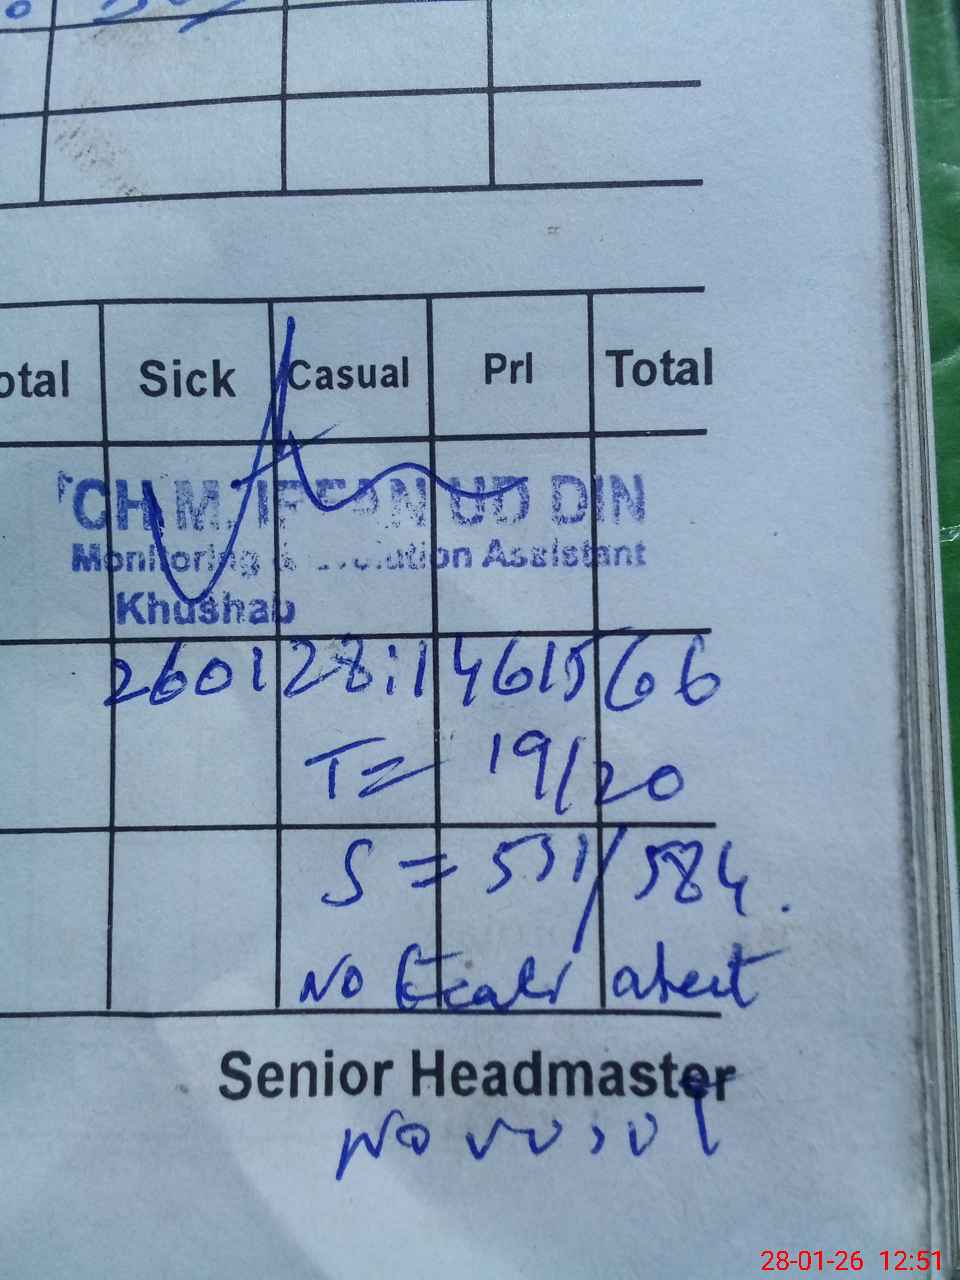 otal Sick Casual Prl Total
CH M. IRFAN UD DIN
Monitoring & Evaluation Assistant
Khushab
260128:1461566
T = 19/20
S = 531/584.
No absent
Senior Headmaster
28-01-26 12:51